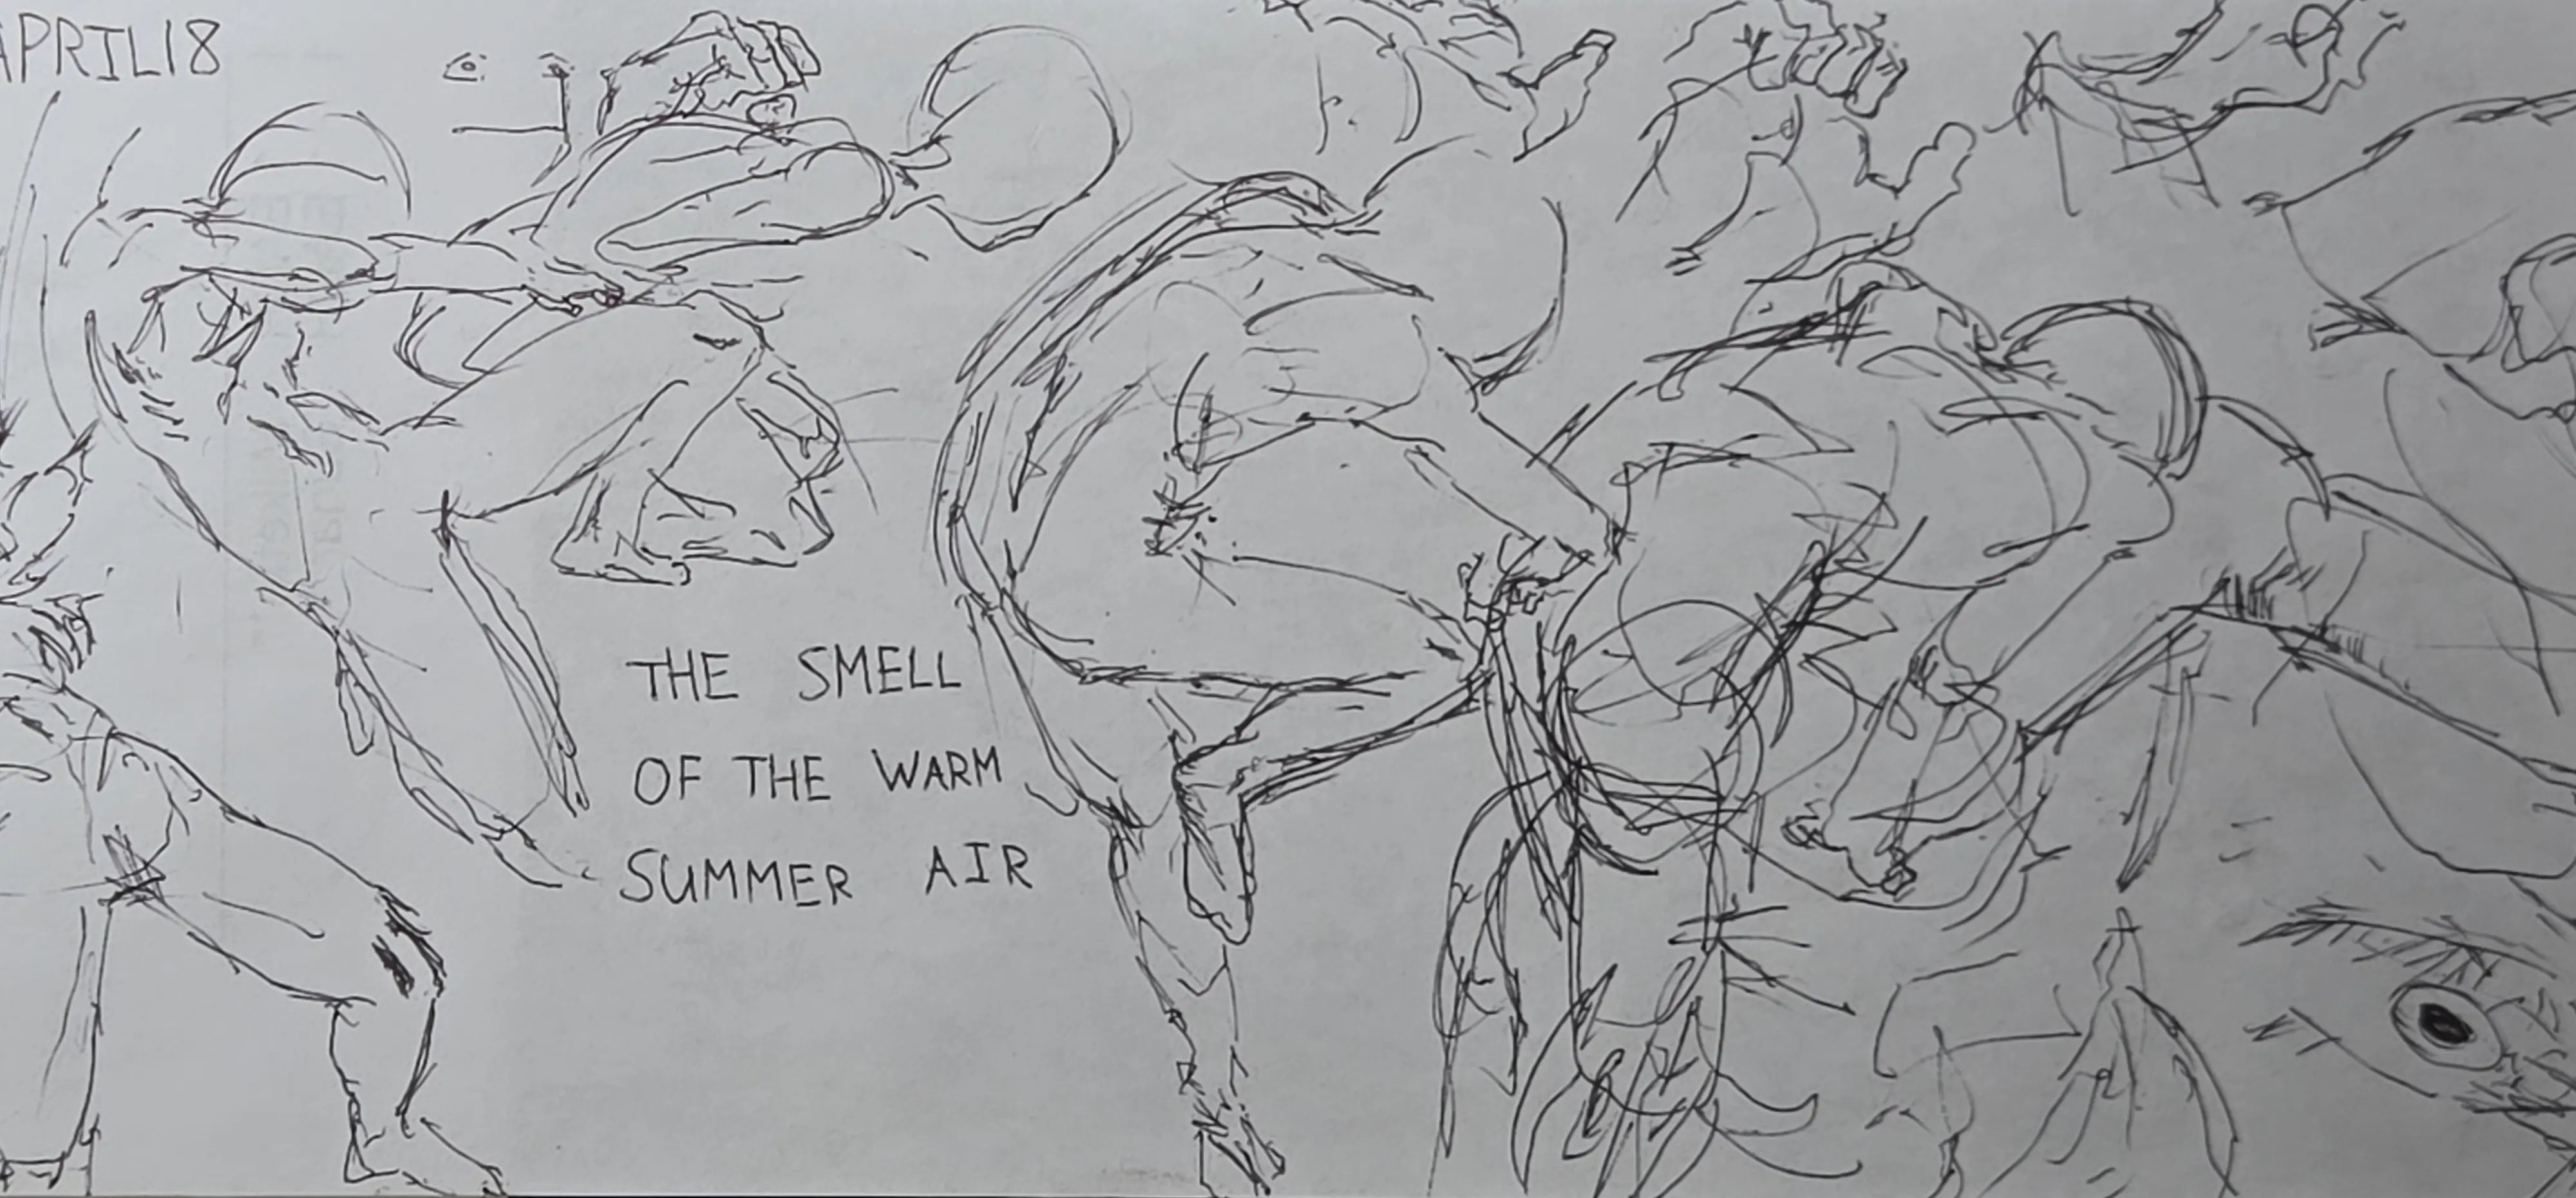 APRIL 18
THE SMELL
OF THE WARM
SUMMER AIR